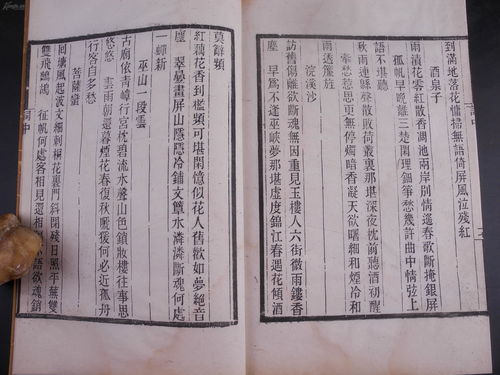 到滿地落花慵掃無語倚屏風泣殘紅
酒泉子
雨漬花零紅散香凋池兩岸別情遙春歌斷掩銀屏
孤帆早晚離三楚閒理鈿箏愁幾許曲中情弦上
語不堪聽
秋雨連緜聲散敗荷叢裏那堪深夜枕前聽酒初醒
牽愁惹思更無停燭暗香凝天欲曙細和煙冷和
雨透簾旌
浣溪沙
訪舊傷離欲斷魂無因重見玉樓人六街微雨鏤香
塵 早爲不逢巫峽夢那堪虛度錦江春遇花傾酒
莫辭頻
紅藕花香到檻頻可堪閒憶似花人舊歡如夢絕音
塵 翠疊畫屏山隱隱冷鋪文簟水潾潾斷魂何處
一蟬新
巫山一段雲
古廟依青嶂行宮枕碧流水聲山色鎖妝樓往事思
悠悠 雲雨朝還暮煙花春復秋啼猿何必近孤舟
行客自多愁
菩薩蠻
回塘風起波文細刺桐花裏門斜閉殘日照平蕪雙
雙飛鷓鴣 征帆何處客相見還相隔不語欲魂銷